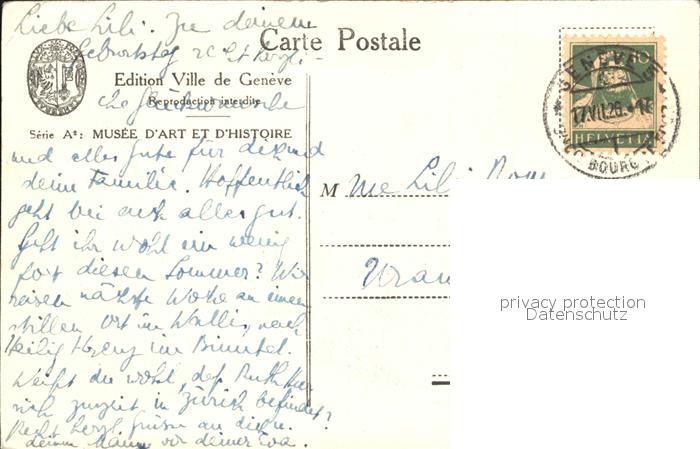 Liebe Lili. Zu deinem
Geburtstag recht herzli-
che Glückwünsche
Carte Postale
Edition Ville de Genève
Reproduction interdite
Série A⁸: MUSÉE D'ART ET D'HISTOIRE
und alles Gute für dich und
deine Familie. Hoffentlich
geht es bei euch allen gut.
Geht ihr wohl ein wenig
fort diesen Sommer? Wir
reisen nächste Woche an einen
stillen Ort im Wallis, nach
Heilig Kreuz im Binntal.
Weißt du wohl, daß Ruth
sich zurzeit in Zürich befindet?
Recht herzl. Grüsse an dich u.
deinen Mann von deiner Eva.
GENÈVE
17.VII.26.
BOURG
10
HELVETIA
M me Lili
privacy protection
Datenschutz